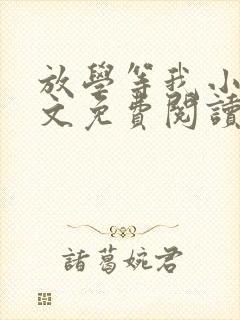 放學等我 小
文免費閱讀
諸葛婉君